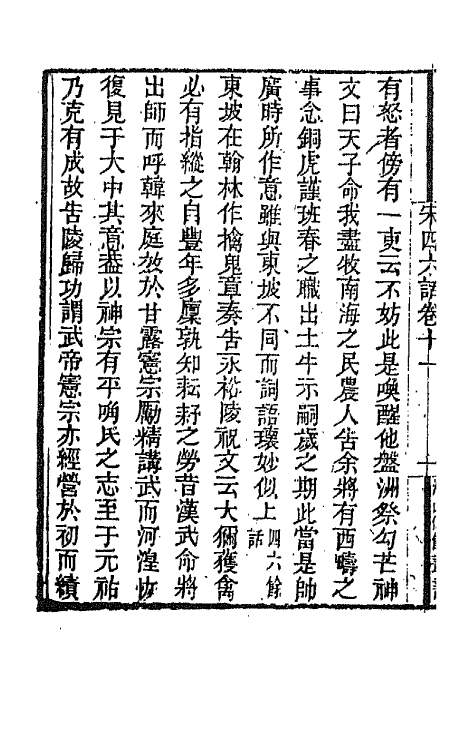 宋四六話卷十一
有怒者傍有一吏云不妨此是喚醒他盤洲祭勾芒神
文曰天子命我盡牧南海之民農人告余將有西疇之
事念銅虎謹班春之職出土牛示嗣歲之期此當是帥
廣時所作意雖與東坡不同而詞語瓌妙似上四六餘話
東坡在翰林作擒鬼章奏告永裕陵祝文云大獮獲禽
必有指縱之自豐年多廩孰知耘耔之勞昔漢武命將
出師而呼韓來庭效於甘露憲宗厲精講武而河湟恢
復見于大中其意蓋以神宗有平唃氏之志至于元祐
乃克有成故告陵歸功謂武帝憲宗亦經營於初而績